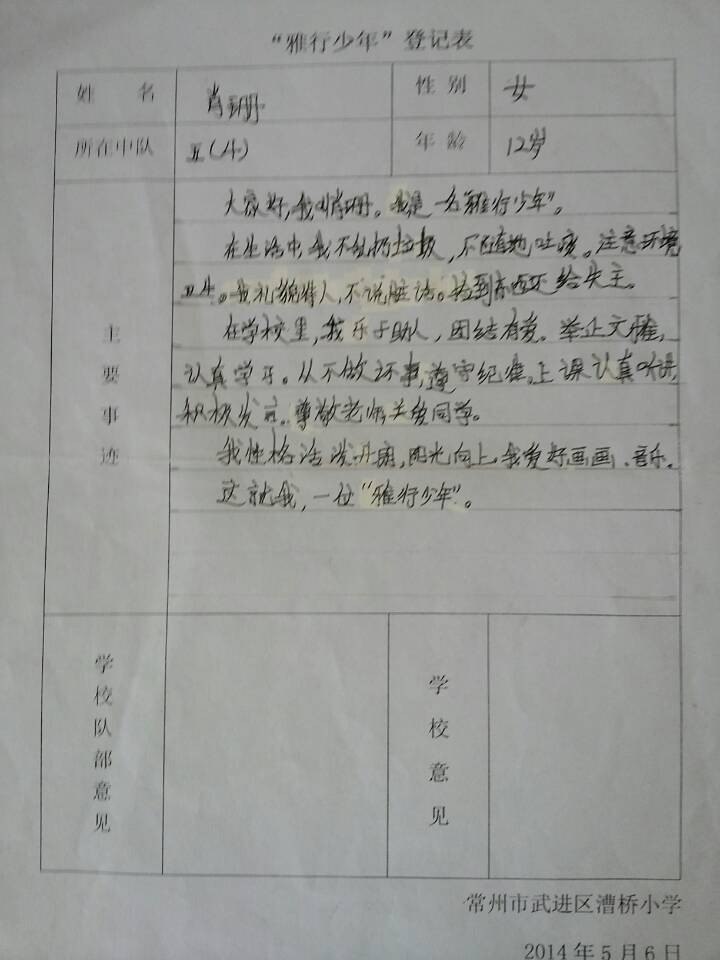 “雅行少年”登记表
姓 名 肖珊 性 别 女
所在中队 五(4) 年 龄 12岁
主要事迹
大家好,我叫肖珊。我是一名“雅行少年”。
在生活中,我不乱扔垃圾,不随地吐痰。注意环境
卫生。我礼貌待人,不说脏话。捡到东西还给失主。
在学校里,我乐于助人,团结有爱。举止文雅,
认真学习。从不做坏事,遵守纪律。上课认真听讲,
积极发言。尊敬老师关爱同学。
我性格活泼开朗,阳光向上。我爱好画画、音乐。
这就我,一位“雅行少年”。
学校队部意见
学校意见
常州市武进区漕桥小学
2014年5月6日